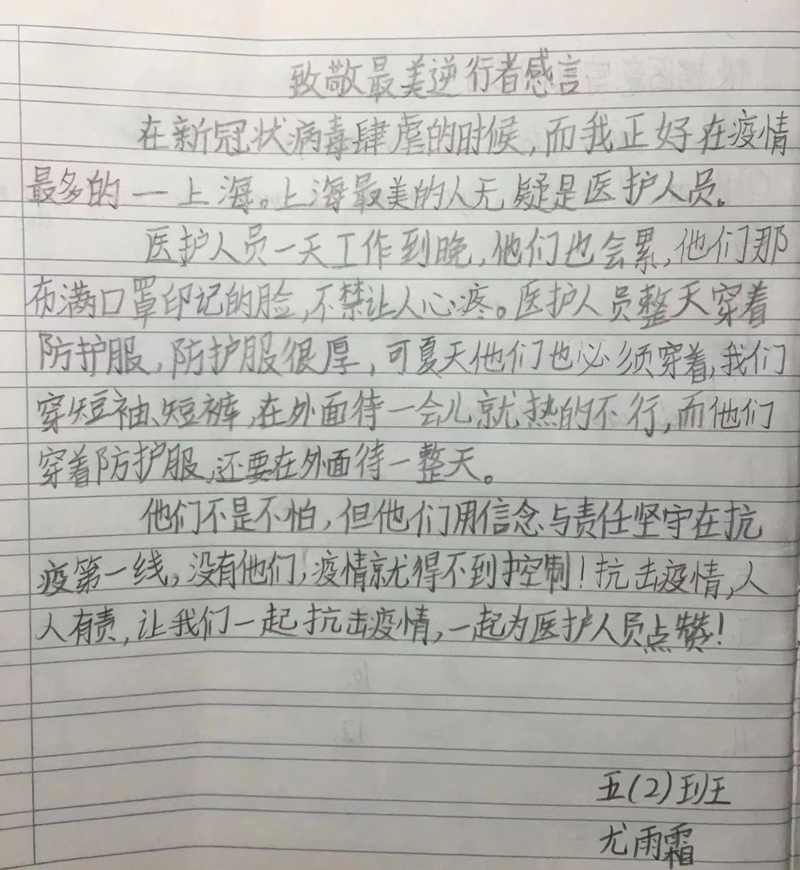 致敬最美逆行者感言
在新冠状病毒肆虐的时候,而我正好在疫情
最多的一上海。上海最美的人无疑是医护人员。
医护人员一天工作到晚,他们也会累,他们那
布满口罩印记的脸,不禁让人心疼。医护人员整天穿着
防护服,防护服很厚,可夏天他们也必须穿着,我们
穿短袖、短裤,在外面待一会儿就热的不行,而他们
穿着防护服,还要在外面待一整天。
他们不是不怕,但他们用信念与责任坚守在抗
疫第一线,没有他们,疫情就得不到控制!抗击疫情,人
人有责,让我们一起抗击疫情,一起为医护人员点赞!
五(2)班
尤雨霜